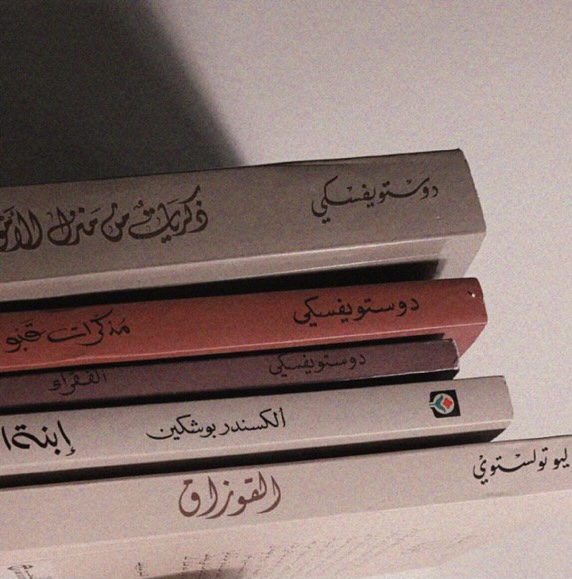 دوستويفسكي ذكريات من منزل الأمو
دوستويفسكي مذكرات قبو
دوستويفسكي الفقراء
ألكسندر بوشكين إبنة ا
ليو تولستوي القوزاق